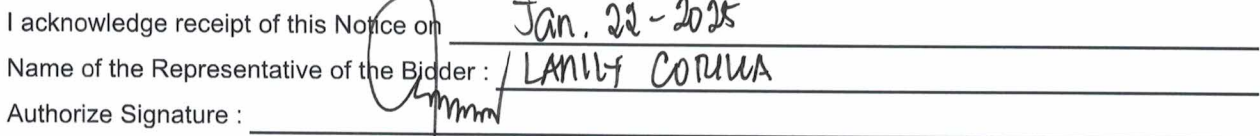 I acknowledge receipt of this Notice on Jan. 22-2025
Name of the Representative of the Bidder : LANILY
Authorize Signature :